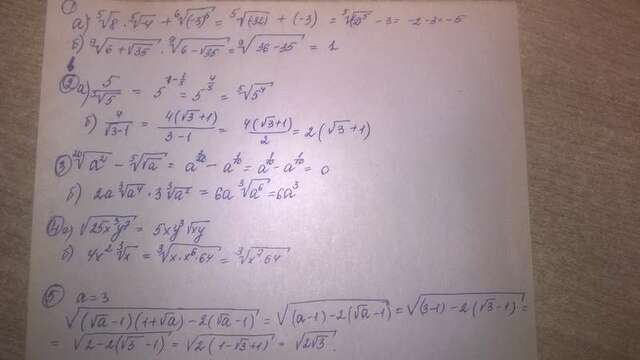 ①
а) ⁵√8 · ⁵√-4 + ⁶√(-3)⁶ = ⁵√(-32) + (-3) = ⁵√(-2)⁵ - 3 = -2-3 = -5
б) ⁹√(6+√35) · ⁹√(6-√35) = ⁹√(36-35) = 1
② а) 5/⁵√5 = 5^(1-1/5) = 5^(4/5) = ⁵√5⁴
б) 4/(√3-1) = 4(√3+1)/(3-1) = 4(√3+1)/2 = 2(√3+1)
③ ²⁰√a² - ⁵√√a = a^(2/20) - a^(1/10) = a^(1/10) - a^(1/10) = 0
б) 2a ³√a⁴ · 3 ³√a² = 6a ³√a⁶ = 6a³
④ а) √(25x³y⁷) = 5xy³√xy
б) 4x² ³√x = ³√(x·x⁶·64) = ³√(x⁷·64)
⑤ a = 3
√((√a-1)(1+√a)-2(√a-1)) = √((a-1)-2(√a-1)) = √((3-1)-2(√3-1)) =
= √(2-2(√3-1)) = √(2(1-√3+1)) = √(2√3).